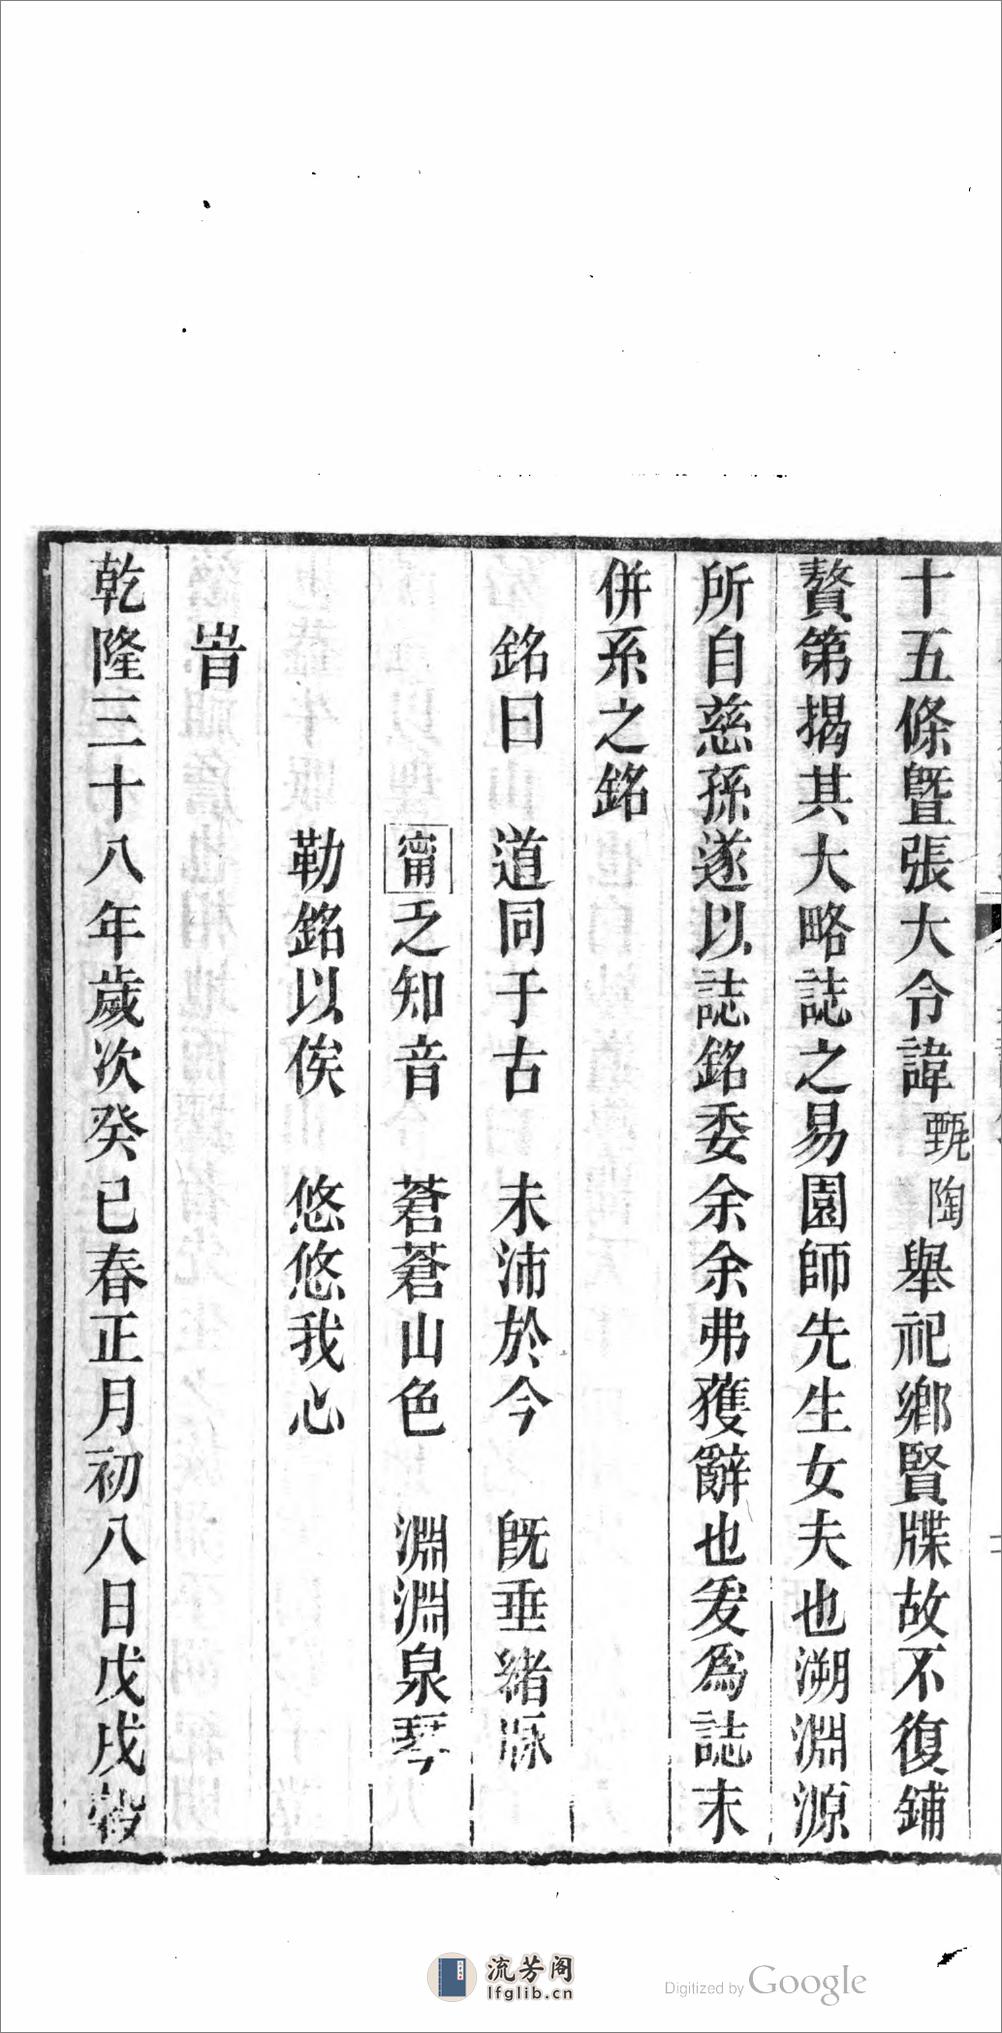 十五條暨張大令諱甄陶舉祀鄉賢牒故不復鋪
贅第揭其大略誌之易園師先生女夫也溯淵源
所自慈孫遂以誌銘委余余弗獲辭也爰爲誌末
併系之銘
銘曰 道同于古 未沛於今 旣垂緒脉
甯之知音 蒼蒼山色 淵淵泉琴
勒銘以俟 悠悠我心
旹
乾隆三十八年歲次癸巳春正月初八日戊戌穀
流芳阁
lfglib.cn
Digitized by Google